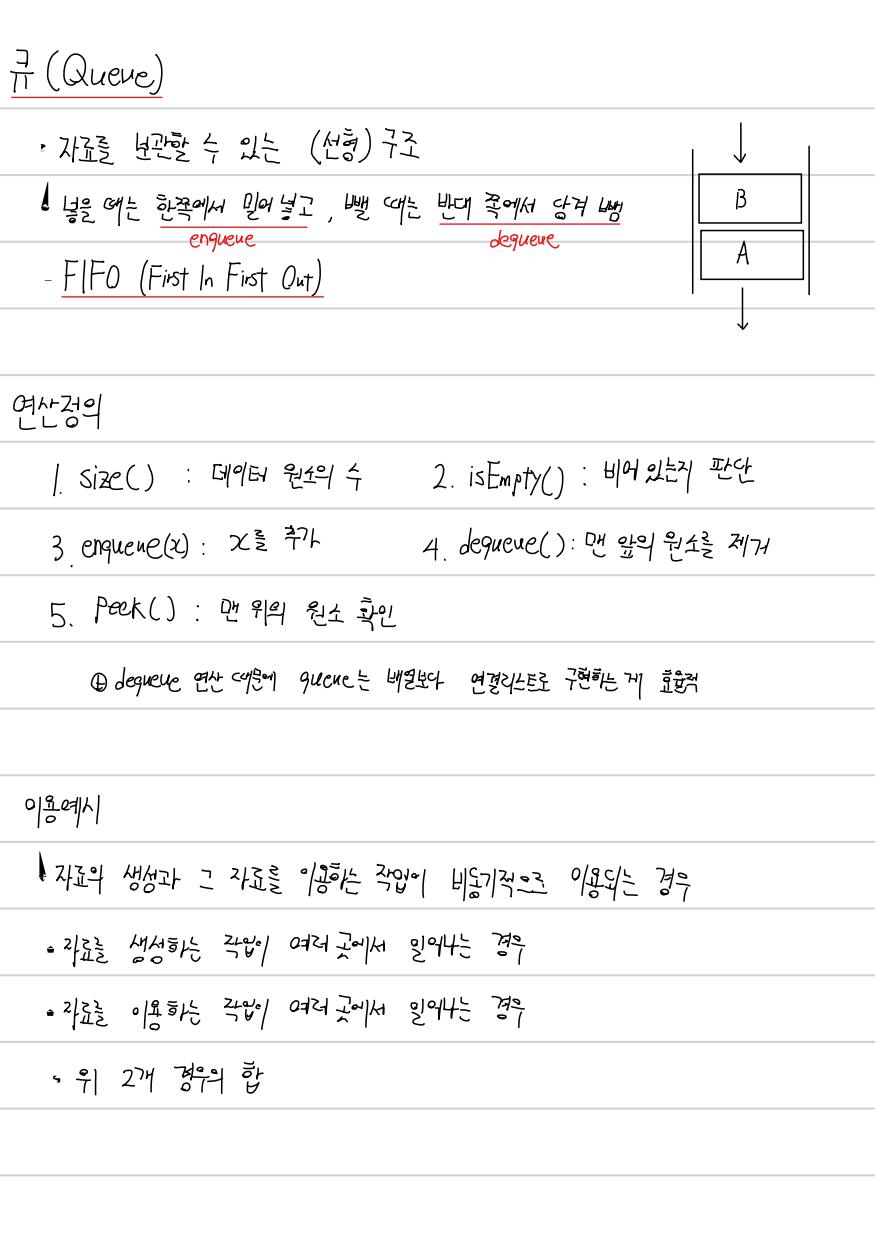 큐 (Queue)
· 자료를 보관할 수 있는 (선형) 구조
· 넣을 때는 한쪽에서 밀어 넣고, 뺄 때는 반대 쪽에서 당겨 뺌
enqueue dequeue
- FIFO (First In First Out)
B
A
연산정의
1. size() : 데이터 원소의 수 2. isEmpty() : 비어 있는지 판단
3. enqueue(x) : x를 추가 4. dequeue() : 맨 앞의 원소를 제거
5. peek() : 맨 위의 원소 확인
⊕ dequeue 연산 때문에 queue는 배열보다 연결리스트로 구현하는 게 효율적
이용예시
· 자료의 생성과 그 자료를 이용하는 작업이 비동기적으로 이용되는 경우
· 자료를 생성하는 작업이 여러 곳에서 일어나는 경우
· 자료를 이용하는 작업이 여러 곳에서 일어나는 경우
· 위 2개 경우의 합